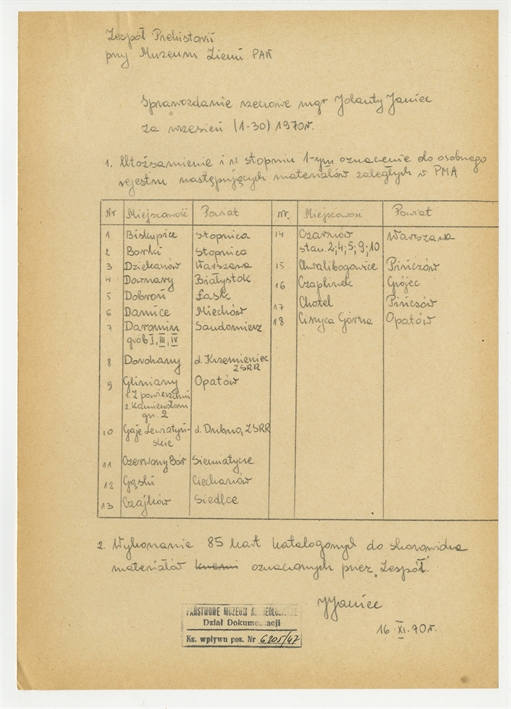 Zespół Prehistorii
przy Muzeum Ziemi PAN
Sprawozdanie rzeczowe mgr Jolanty Janiec
za wrzesień (1-30) 1970 r.
1. Utożsamienie i w stopniu 1-ym oznaczenie do osobnego
rejestru następujących materiałów zaległych w PMA
Nr Miejscowość Powiat Nr. Miejscowość Powiat
1 Biskupice Stopnica 14 Czarnów Warszawa
stan. 2; 4; 5; 9; 10
2 Borki Stopnica
3 Dziekanów Warszawa 15 Chwalibogowice Pińczów
4 Dojmary Białystok 16 Czaplinek Grójec
5 Dobroń Łask 17 Chotel Pińczów
6 Damice Miechów 18 Górna Opatów
7 Daromin Sandomierz
grób I, III, IV
8 d. Krzemieniec
ZSRR
9 Gliniany Opatów
1. Z powierzchni
gr. 2
10 Gaje Lewiatyń-
skie d. Dubno, ZSRR
11 Czerwony Bór Siemiatycze
12 Gąski Ciechanów
13 Czajków Siedlce
2. Wykonanie 85 kart katalogowych do skorowidza
materiałów oznaczonych przez "Zespół".
JJaniec
16 XI. 70 r.
PAŃSTWOWE MUZEUM ARCHEOLOGICZNE
Dział Dokumentacji
Ks. wpływu poz. Nr 6205/47